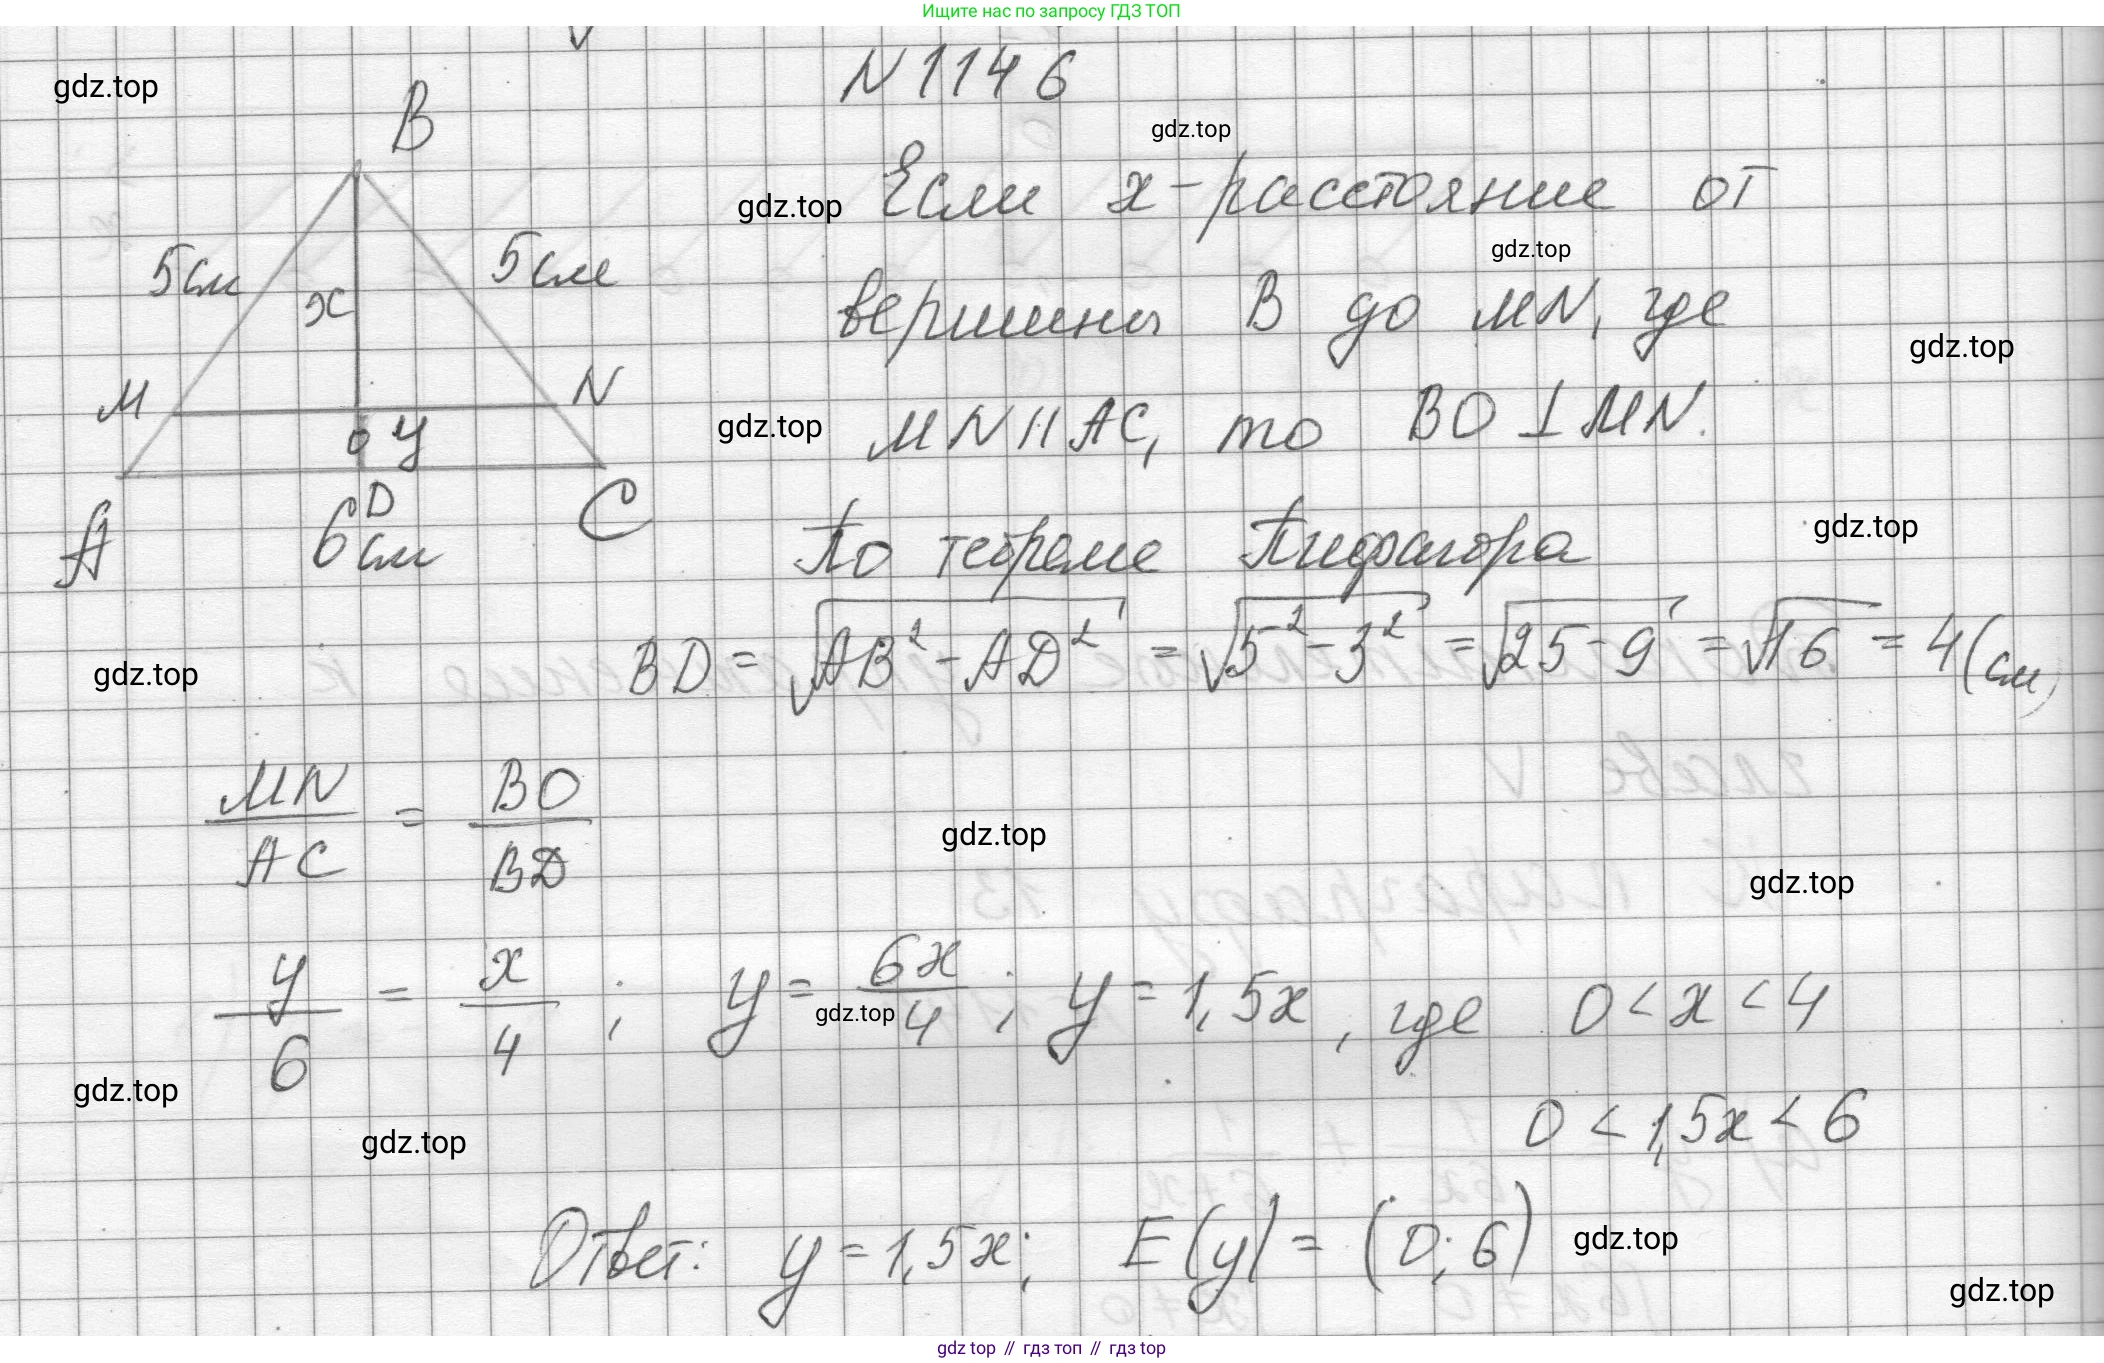 Ищите нас по запросу ГДЗ ТОП
N 1146
gdz.top
B
gdz.top
Если x - расстояние от
gdz.top
5 см
x
5 см
gdz.top
вершины B до MN, где
gdz.top
M
N
O
y
gdz.top
MN || AC, то BO ⊥ MN.
A
D
6 см
C
По теореме Пифагора
gdz.top
BD = √(AB² - AD²) = √(5² - 3²) = √(25 - 9) = √16 = 4 (см)
gdz.top
MN/AC = BO/BD
gdz.top
gdz.top
y/6 = x/4 ; y = 6x/4 ; y = 1,5x , где 0 < x < 4
gdz.top
gdz.top
0 < 1,5x < 6
gdz.top
Ответ: y = 1,5x; E(y) = (0; 6)
gdz.top
gdz.top
gdz top // гдз топ // гдз top